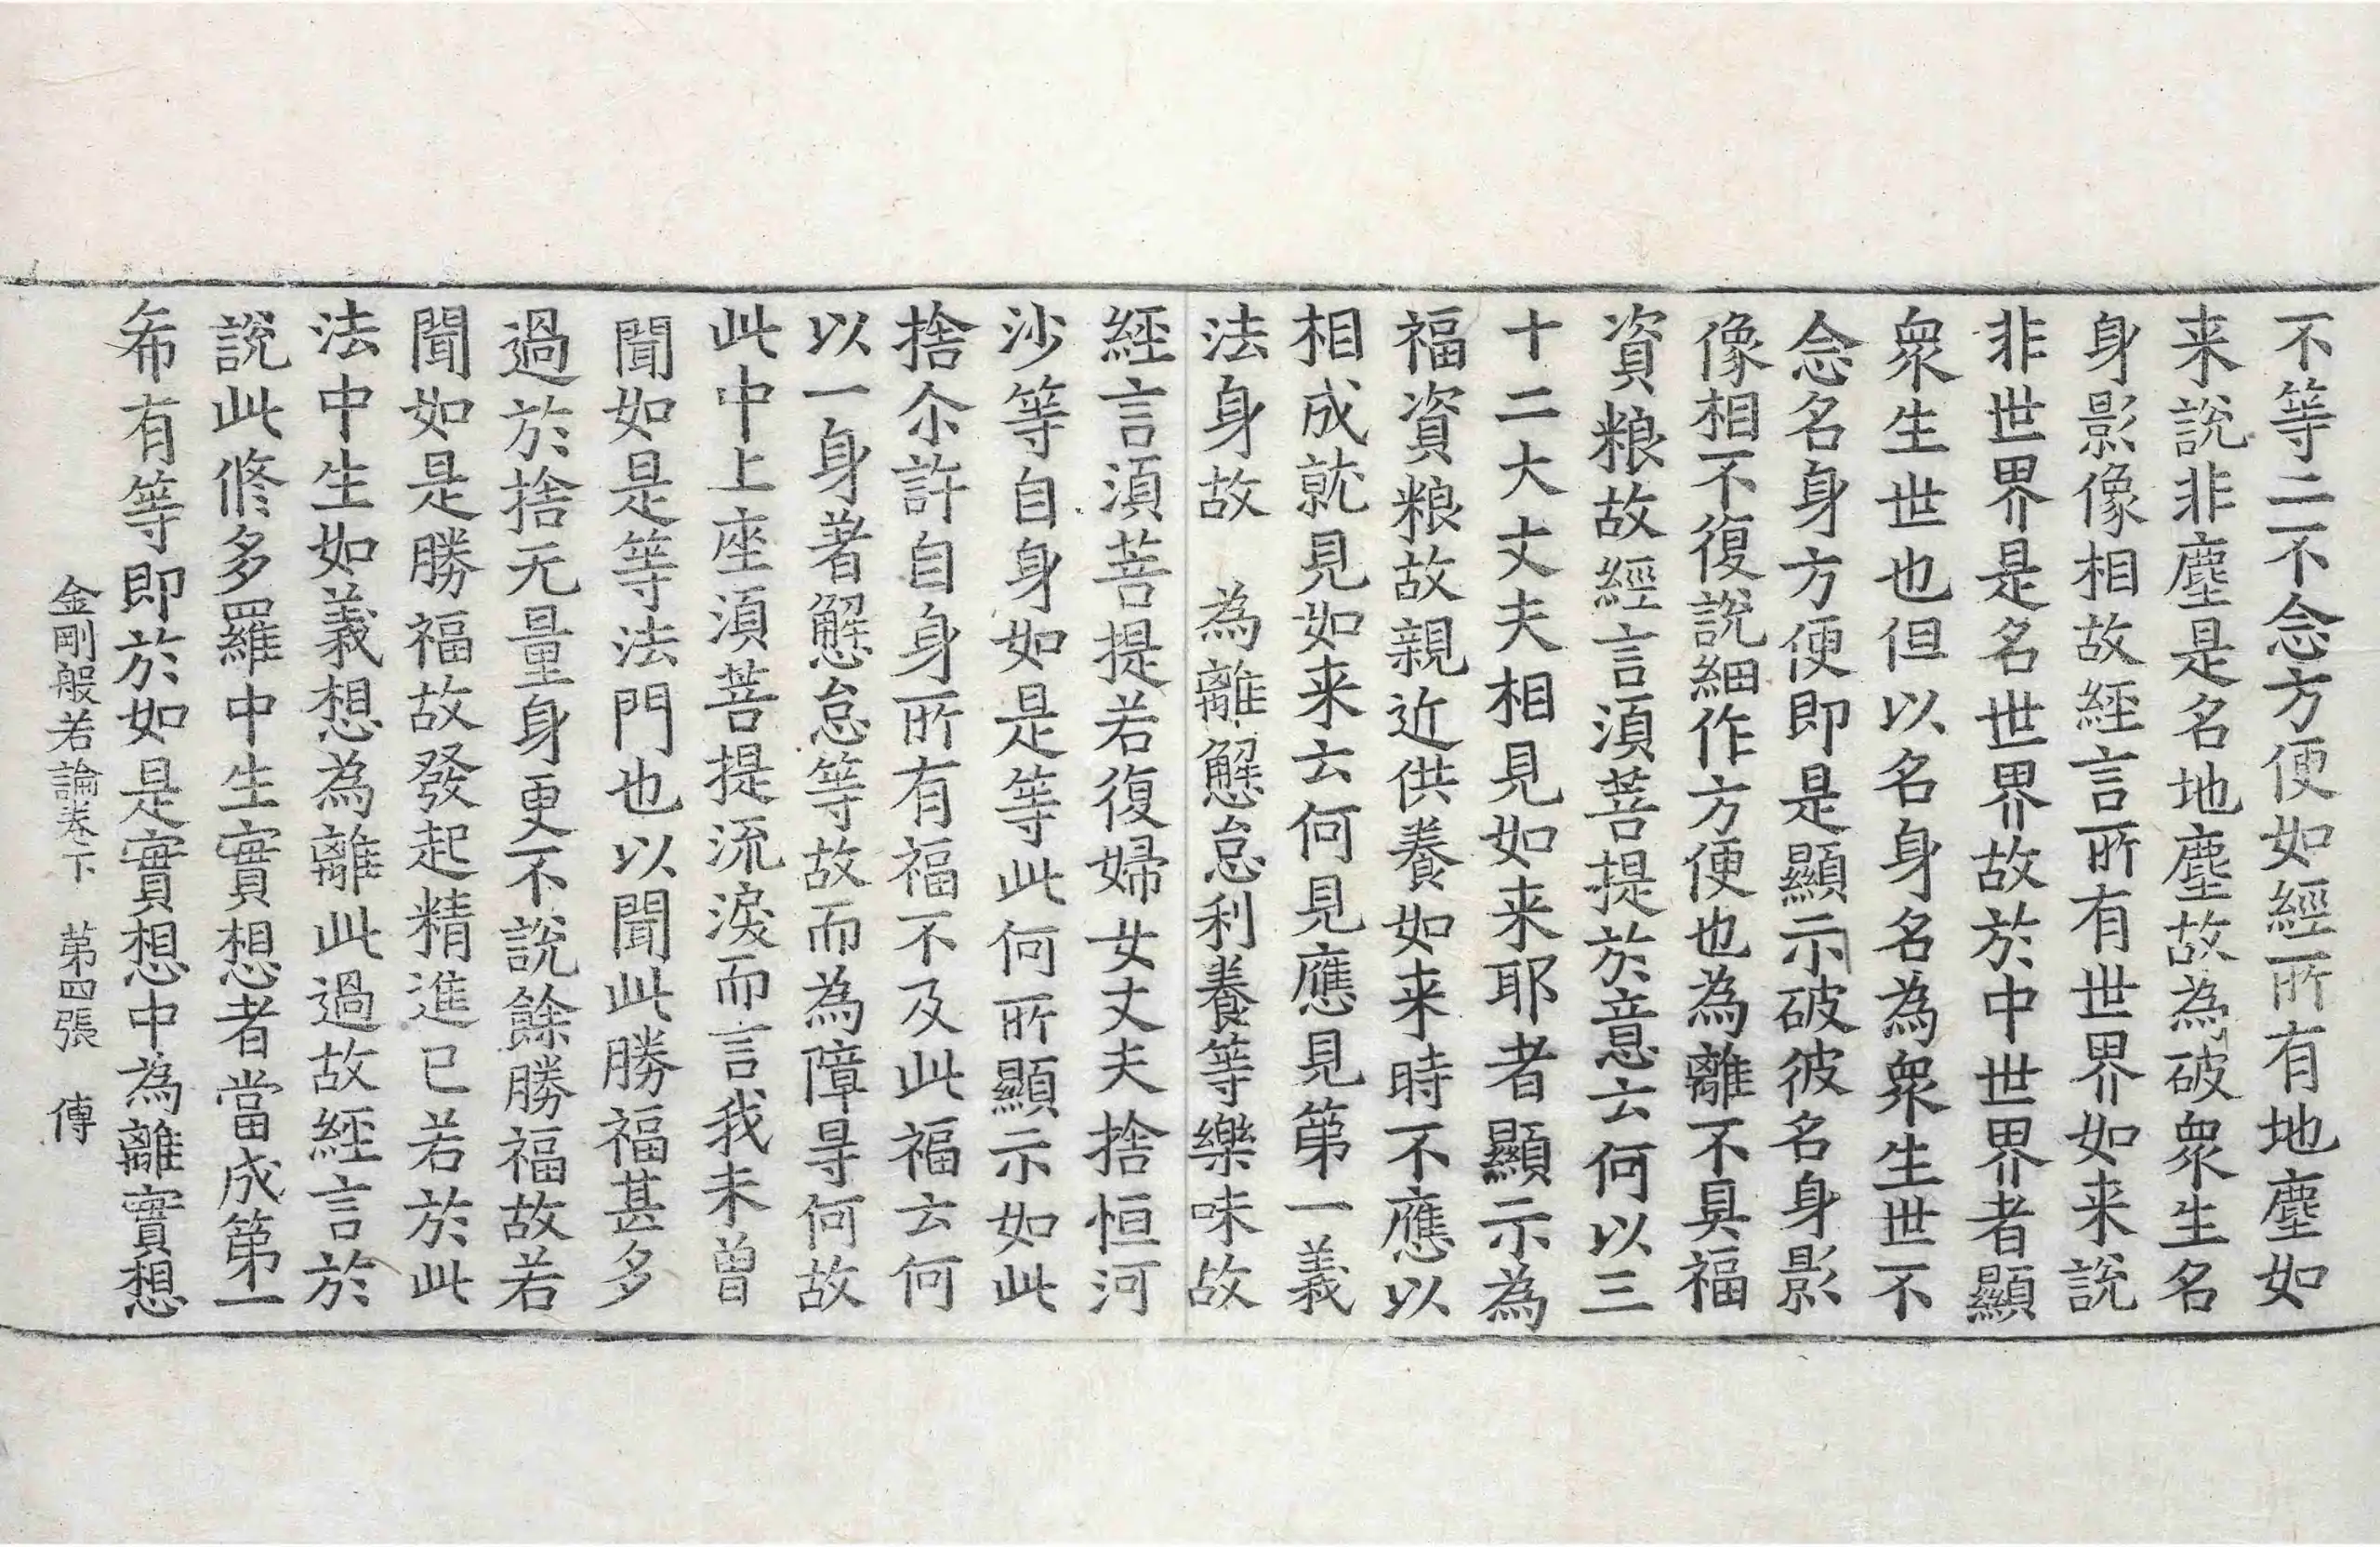 不等二不念方便如經所有地塵如
来說非塵是名地塵故為破眾生名
身影像相故經言所有世界如来說
非世界是名世界故於中世界者顯
眾生世也但以名身名為眾生世不
念名身方便即是顯示破彼名身影
像相不復說細作方便也為離不具福
資粮故經言湏菩提於意云何以三
十二大丈夫相見如来耶者顯示為
福資粮故親近供養如来時不應以
相成就見如来云何見應見第一義
法身故　為離懈怠利養等樂味故
經言湏菩提若復婦女丈夫捨恒河
沙等自身如是等此何所顯示如此
捨尒許自身所有福不及此福云何
以一身著懈怠等故而為障㝵何故
此中上座湏菩提流淚而言我未曾
聞如是等法門也以聞此勝福甚多
過於捨无量身更不說餘勝福故若
聞如是勝福故發起精進已若於此
法中生如義想為離此過故經言於
說此修多羅中生實想者當成第一
希有等即於如是實想中為離實想
金剛般若論卷下　第四張　傳